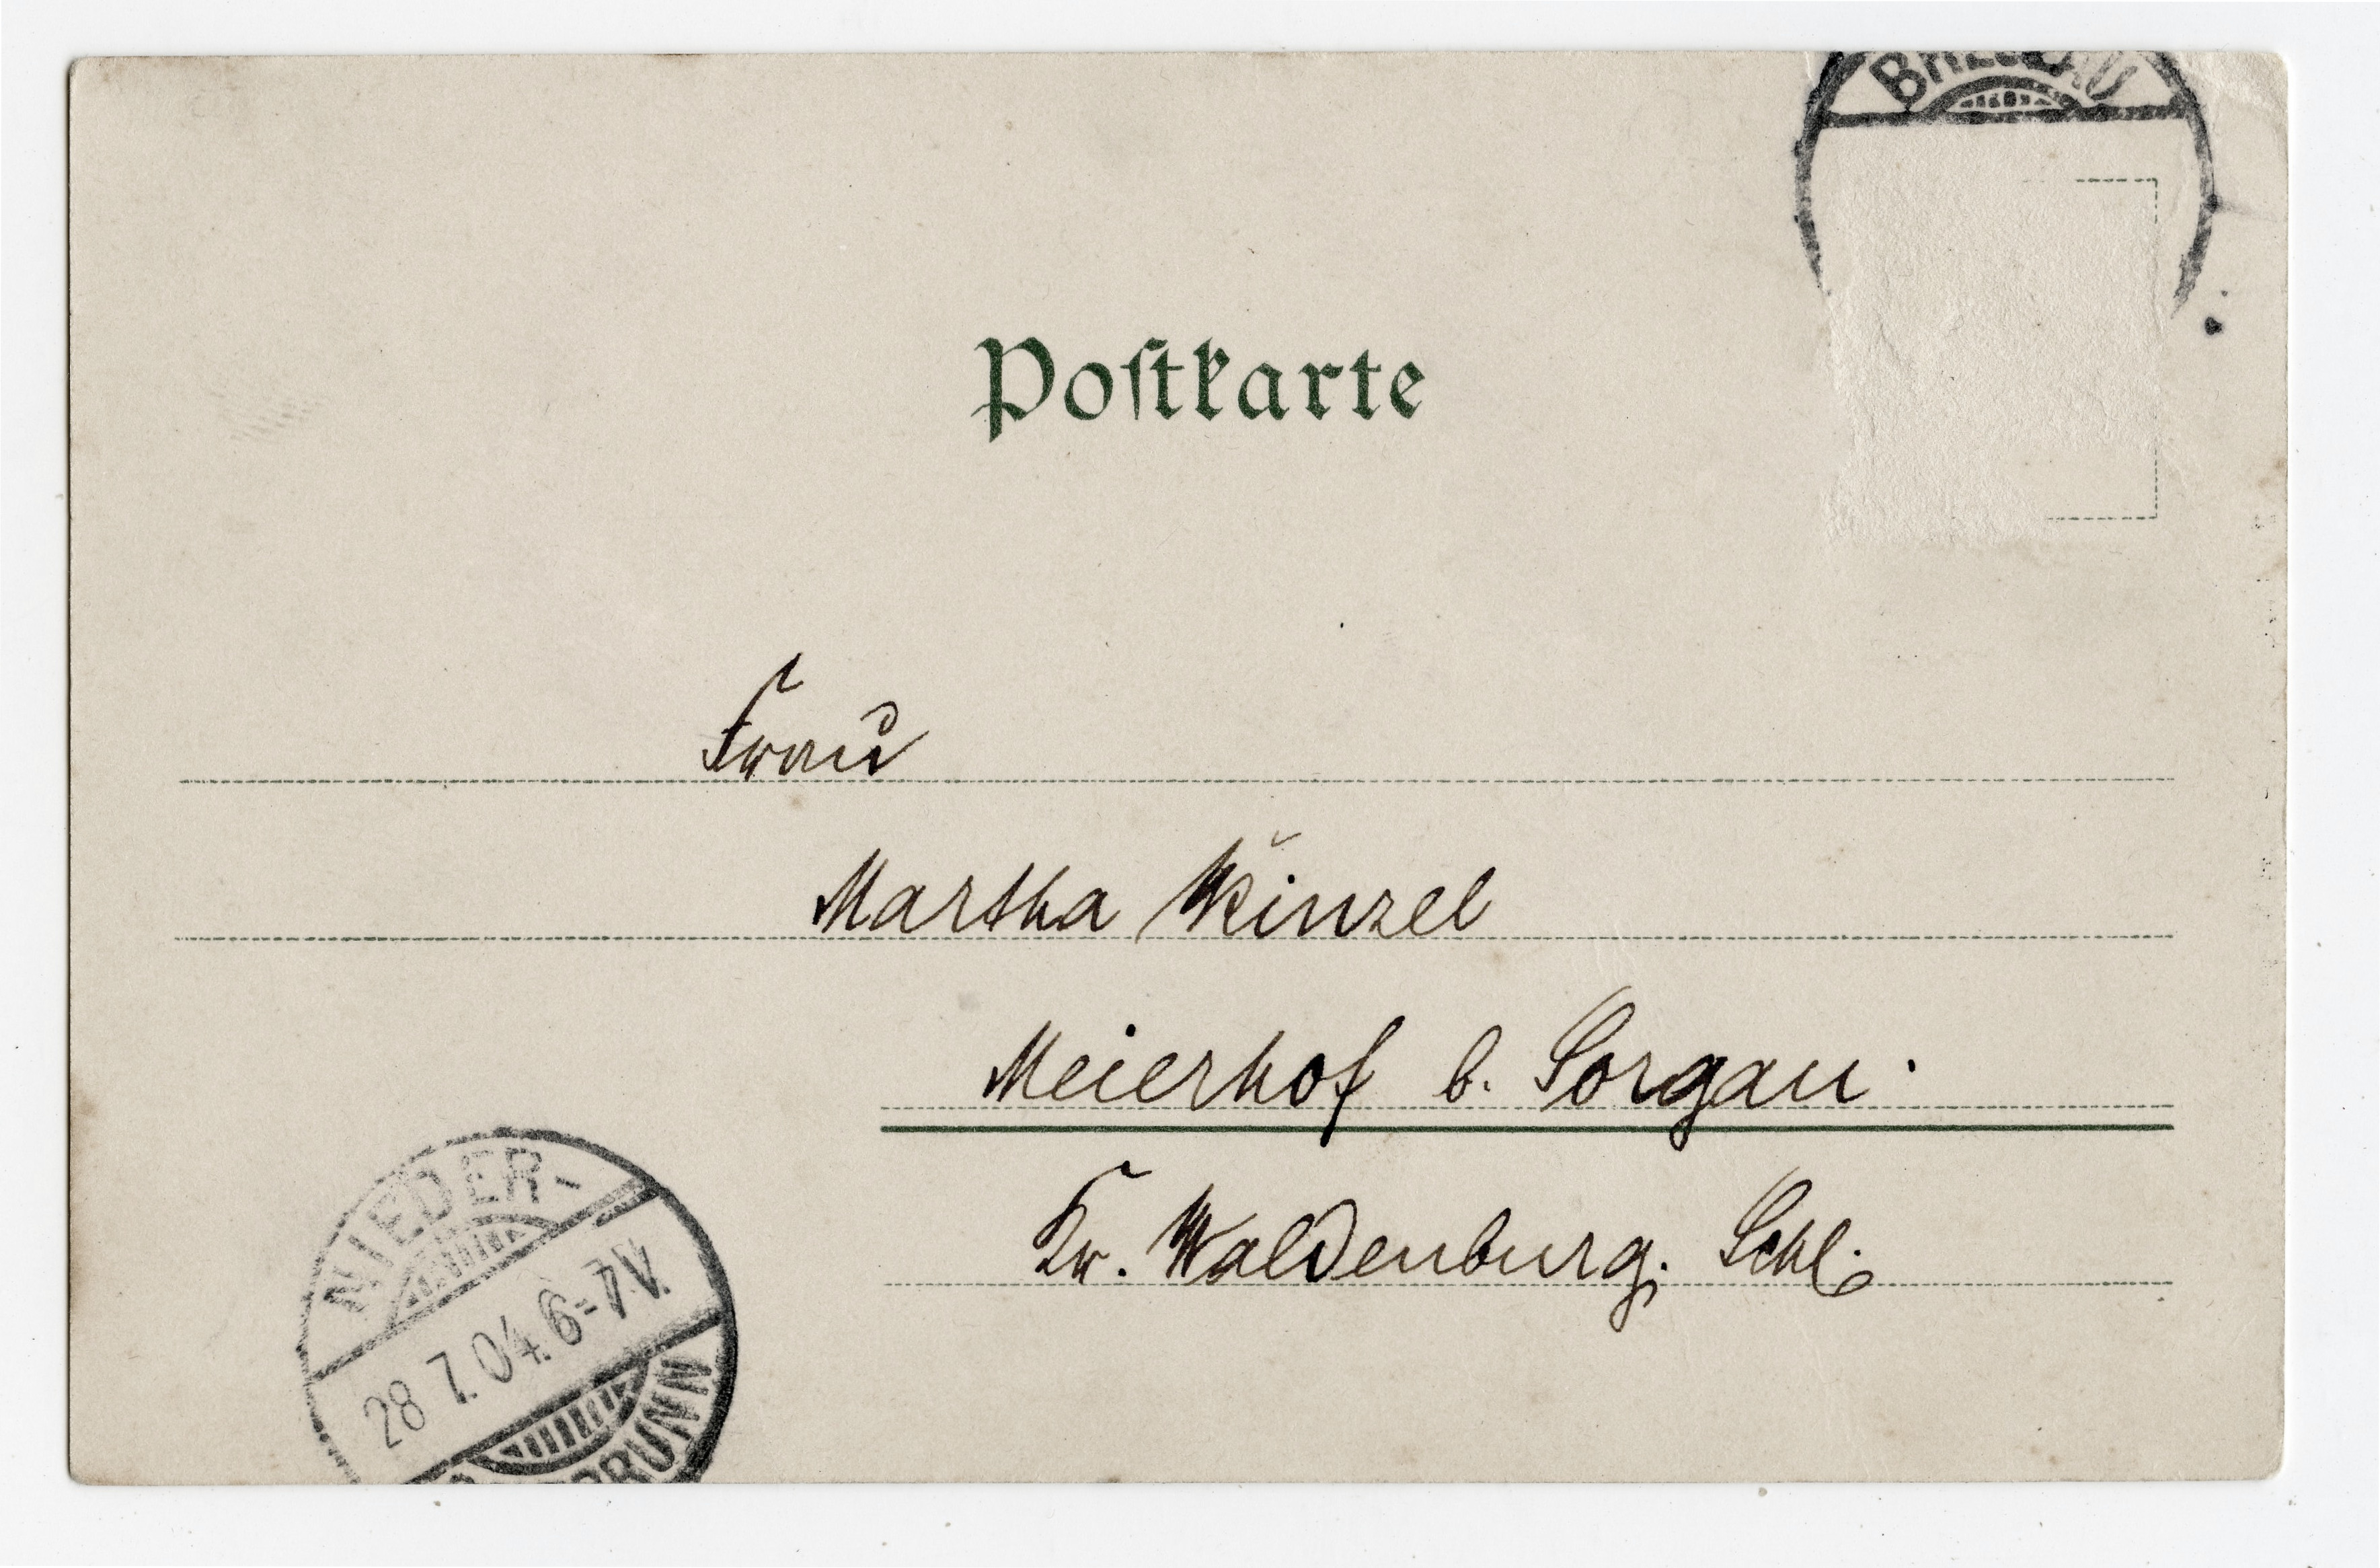 BRESLAU
Poſtkarte
Frau
Martha Kinzel
Meierhof b. Sorgau.
Kr. Waldenburg. Schl.
NIEDER-
28 7.04. 6-7V.
BRUNN